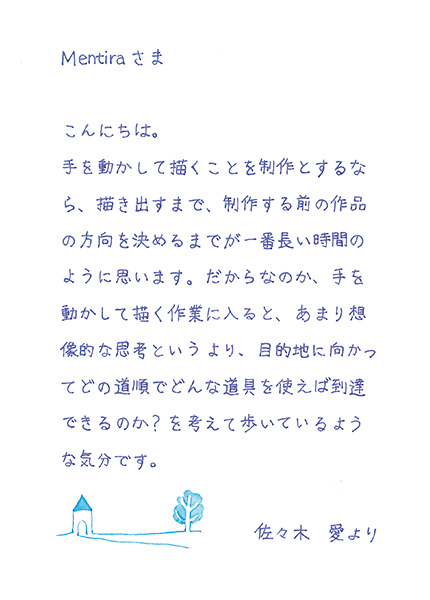 Mentiraさま
こんにちは。
手を動かして描くことを制作とするな
ら、描き出すまで、制作する前の作品
の方向を決めるまでが一番長い時間の
ように思います。だからなのか、手を
動かして描く作業に入ると、あまり想
像的な思考というより、目的地に向かっ
てどの道順でどんな道具を使えば到達
できるのか？を考えて歩いているよう
な気分です。
佐々木 愛より